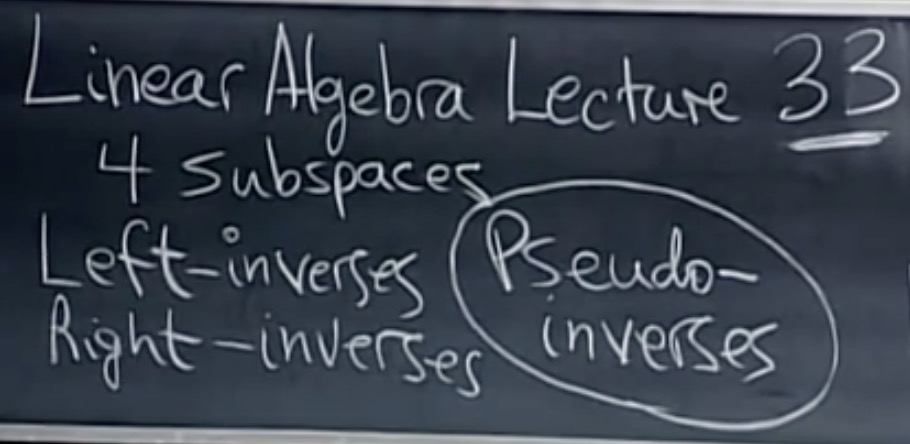 Linear Algebra Lecture 33
4 subspaces
Left-inverses
Right-inverses
Pseudo-
inverses